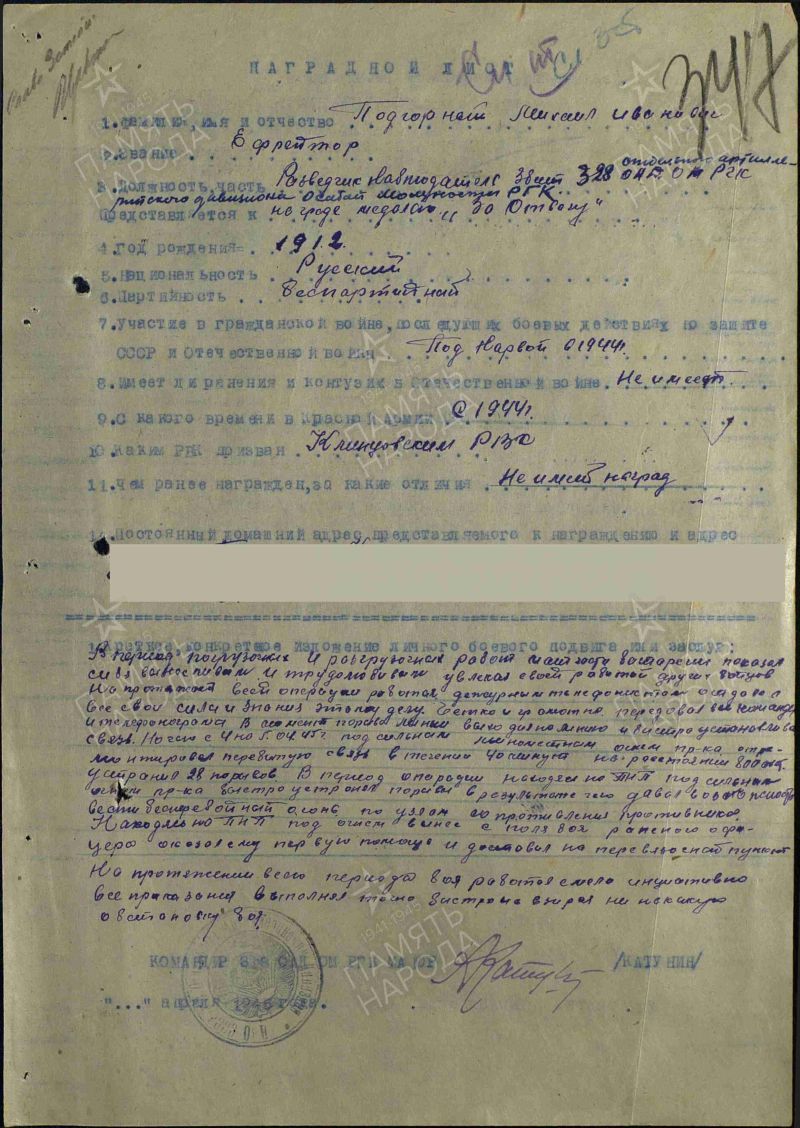 НАГРАДНОЙ ЛИСТ
1. Фамилия, имя и отчество Подгорный Михаил Иванович
2. Звание Ефрейтор
отдельный артилле-
3. Должность, часть Разведчик Наблюдатель 328 ОАД ОМ РГК
рийского дивизиона особой мощности РГК
Представляется к награде медалью "За Отвагу"
4. Год рождения 1912.
5. Национальность Русский
6. Партийность беспартийный
7. Участие в гражданской войне, последующих боевых действиях по защите
СССР и Отечественной войне Под Нарвой в 1944г.
8. Имеет ли ранения и контузии в Отечественной войне Не имеет.
9. С какого времени в Красной Армии С 1944г.
10. Каким РВК призван Клинцовским РВК
11. Чем ранее награжден, за какие отличия Не имеет наград
12. Постоянный домашний адрес представляемого к награждению и адрес
Краткое, конкретное изложение личного боевого подвига или заслуг:
В период погрузочных и разгрузочных работ показал
себя выносливым и трудолюбивым увлекая своей работой других бойцов
На протяжении всей операции работал дежурным телефонистом отдавая
все свои силы и знания этому делу. Четко и грамотно передавал все команды
и телефонограммы В момент порыва линии выходил на линию и быстро устанавливал
связь. Ночью с 4 на 5.04.45г под сильным минометным огнем пр-ка отре-
монтировал перебитую связь в течении 40 минут на расстоянии 800
устранил 28 порывов. В период операции находясь на ПНП под сильным
огнем пр-ка быстро устранял порывы в результате чего давал возможность
вести бесперебойный огонь по узлам сопротивления противника.
Находясь на ПНП под огнем вынес с поля боя раненого офи-
цера оказал ему первую помощь и доставил на перевязочный пункт
На протяжении всего периода боя работал смело инициативно
все приказания выполнял точно быстро не взирая ни на какую
обстановку боя
КОМАНДИР 328 ОАД ОМ РГК МАЙОР /КАТУНИН/
"..." апреля 1945 года.
ПАМЯТЬ НАРОДА
1941-1945